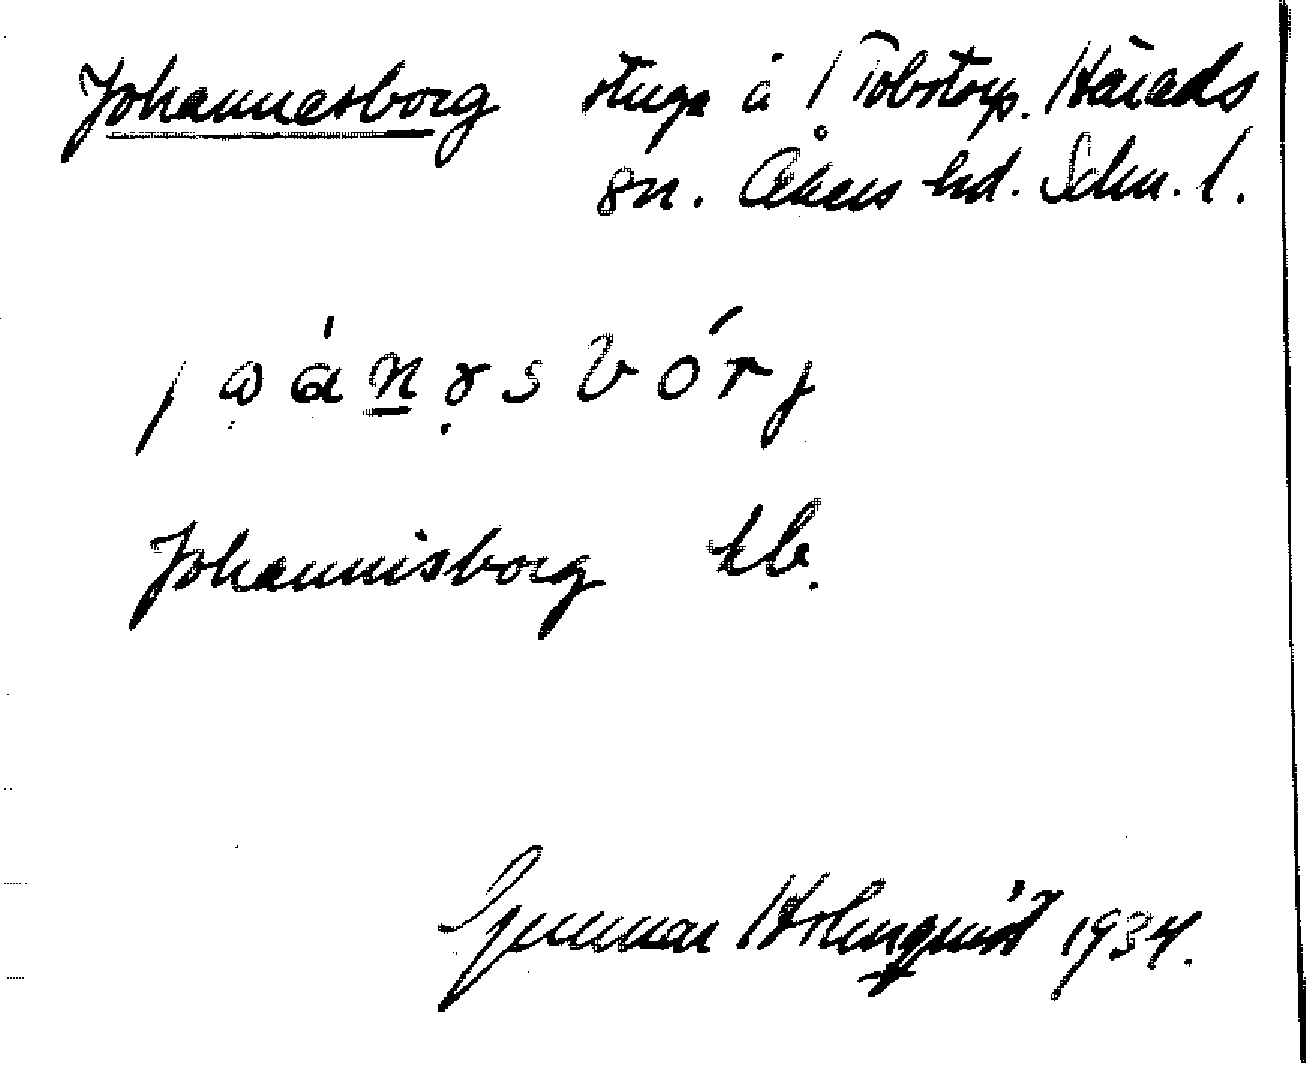 Johannesborg stuga å 1 Tobstorp. Härads
sn. Åkers hd. Södm. l.
Johannisborg tlb.
Gunnar Holmquist 1934.